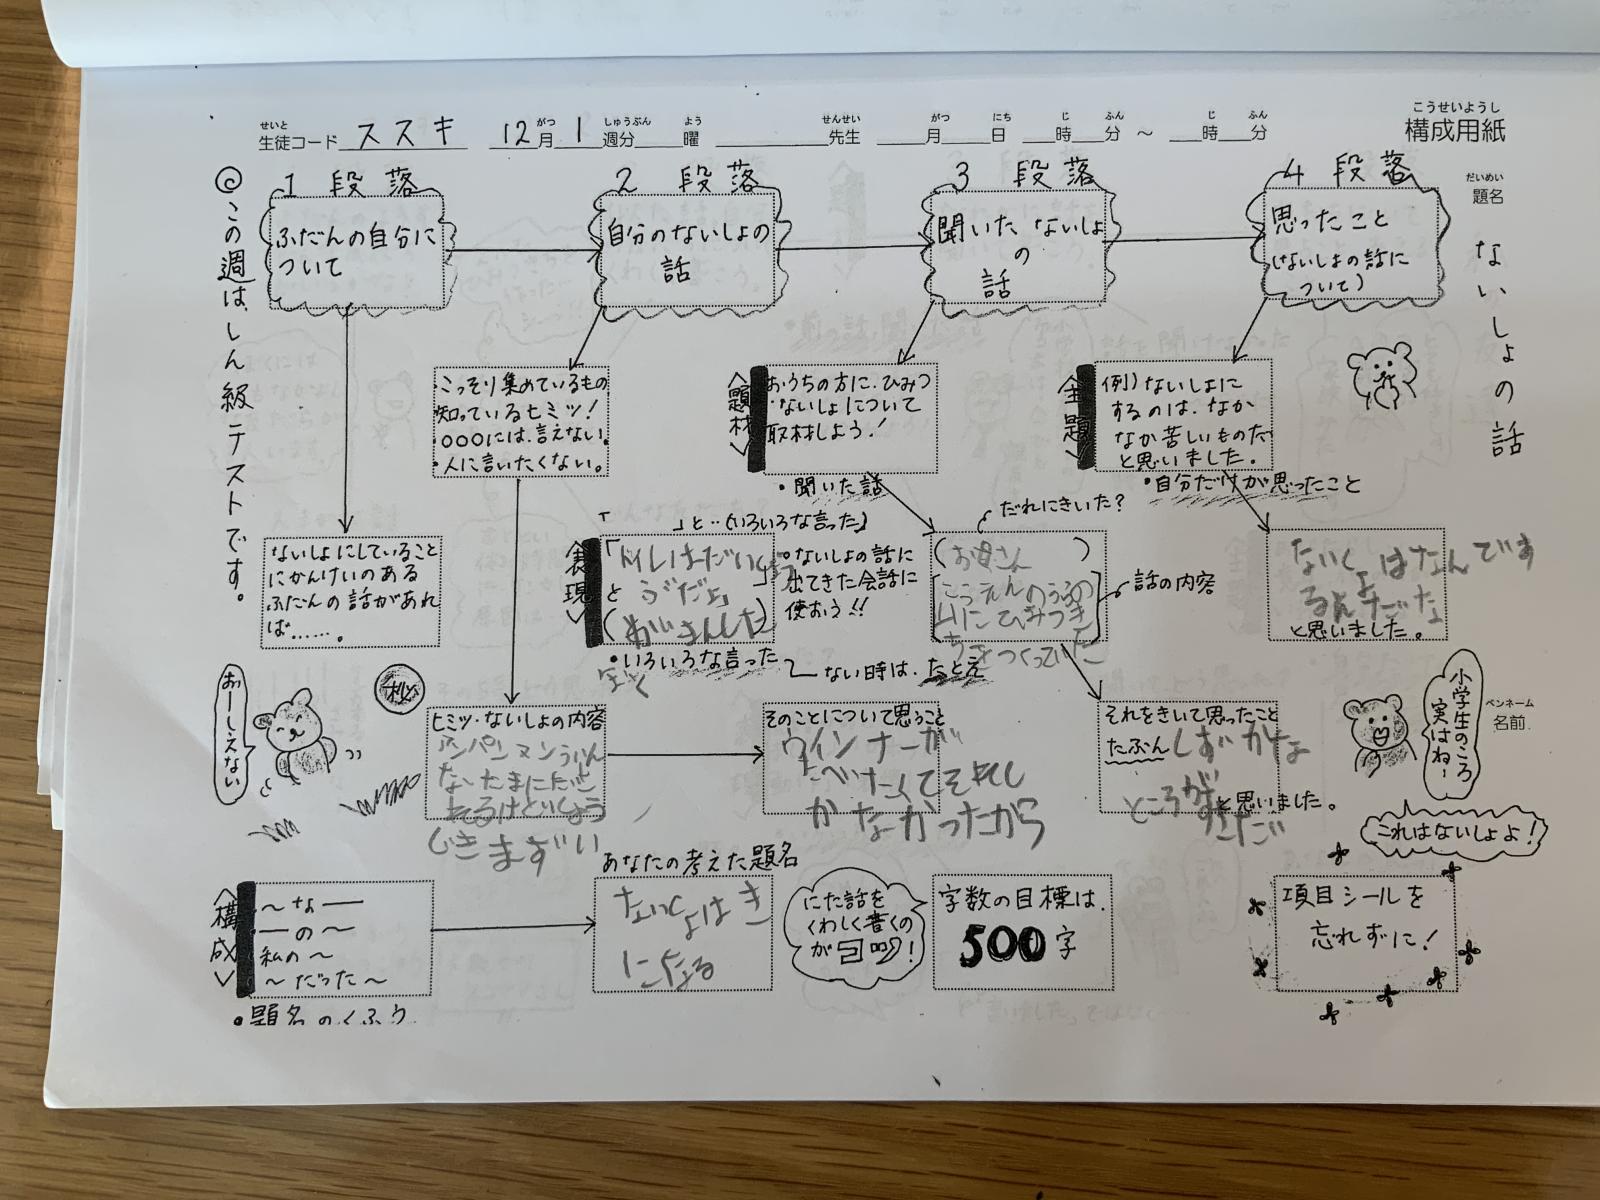 こうせいようし
構成用紙
せいと がつ しゅうぶん よう せんせい がつ にち じ ふん じ ふん
生徒コード ススキ 12月 1 週分 曜 先生 月 日 時 分 ～ 時 分
だいめい
題名
ないしょの話
◎この週は、しん級テストです。
1 段落
ふだんの自分に
ついて
2 段落
自分のないしょの
話
3 段落
聞いた ないしょ
の
話
4 段落
思ったこと
(ないしょの話に
ついて)
・こっそり集めているもの
・知っているヒミツ!
・○○○には、言えない。
・人に言いたくない。
<題材>
おうちの方に、ひみつ
・ないしょについて
取材しよう!
・聞いた話
<主題>
例)ないしょに
するのは、なか
なか苦しいものだ
と思いました。
・自分だけが思ったこと
ないしょにしていること
にかんけいのある
ふだんの話があれ
ば……。
「 」と…(いろいろな言った)
<表現>
「トイレはだいじょう
ぶだよ」
と
・いろいろな言った
・ないしょの話に
出てきた会話に
使おう!!
ない時は、たとえ
だれにきいた?
(お母さん)
こうえんのうらの
山にひみつき
ちをつくっていた
話の内容
ないしょはなんです
と思いました。
おーしえない
秘
ヒミツ・ないしょの内容
アンパンマンうい
な たまにたべ
れるけどしょう
じきまずい
そのことについて思うこと
ウインナーが
たべたくてそれし
かなかったから
それをきいて思ったこと
たぶんしずかな
ところがすきだ
と思いました。
小学生のころ
実はね～
ペンネーム
名前
これはないしょよ!
<構成>
～な――
――の～
私の～
～だった～
・題名のくふう
あなたの考えた題名
ないしょはき
になる
にた話を
くわしく書くの
がコツ!
字数の目標は、
500字
項目シールを
忘れずに!